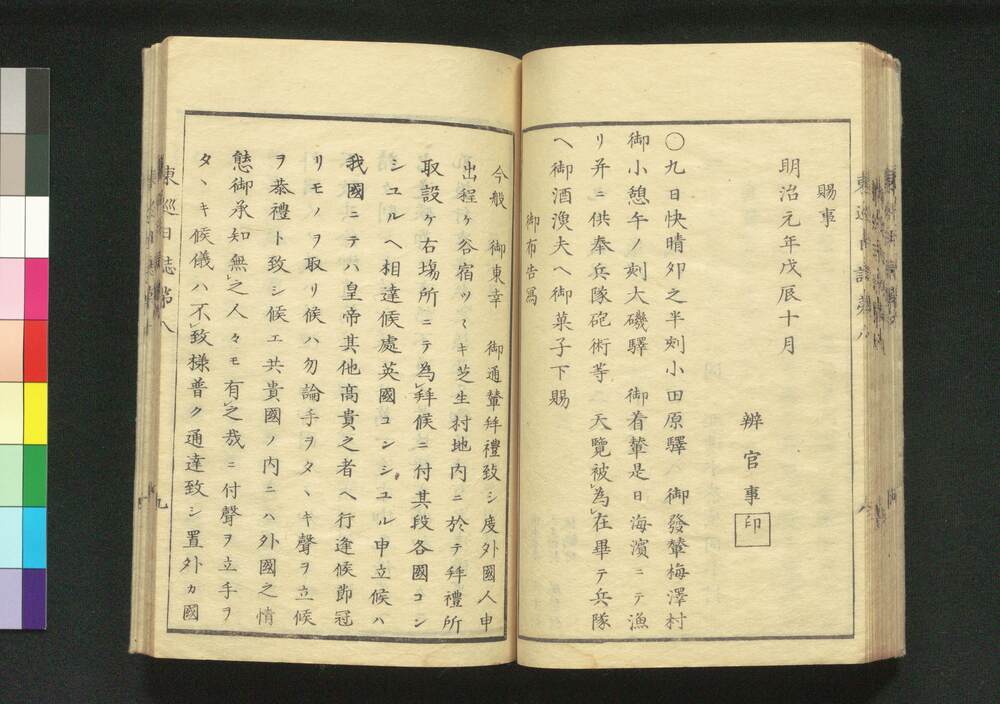 賜事
明治元年戊辰十月
辨官事印
〇九日快晴夘之半刻小田原驛ハ御發輦梅澤村
御小憩午ノ刻大磯驛　御着輦是日海濱ニテ漁
リ并ニ供奉兵隊砲術等ヲ天覽被為在畢テ兵隊
ヘ御酒漁夫ヘ御菓子下賜
御布告寫
今般　御東幸　御通輦拜禮致シ度外國人申
出程ケ谷宿ツヽキ芝生村地内ニ於テ拜禮所
取設ケ右塲所ニテ為拜候ニ付其段各國コン
シユルヘ相達候處英國コンシユル申立候ハ
我國ニテハ皇帝其他高貴之者ヘ行逢候節冠
リモノヲ取リ候ハ勿論手ヲタヽキ聲ヲ立候
ヲ恭禮ト致シ候エ共貴國ノ内ニハ外國之情
態御承知無之人々モ有之哉ニ付聲ヲ立手ヲ
タヽキ候儀ハ不致様普ク通達致シ置外カ國
東巡日誌第八
九